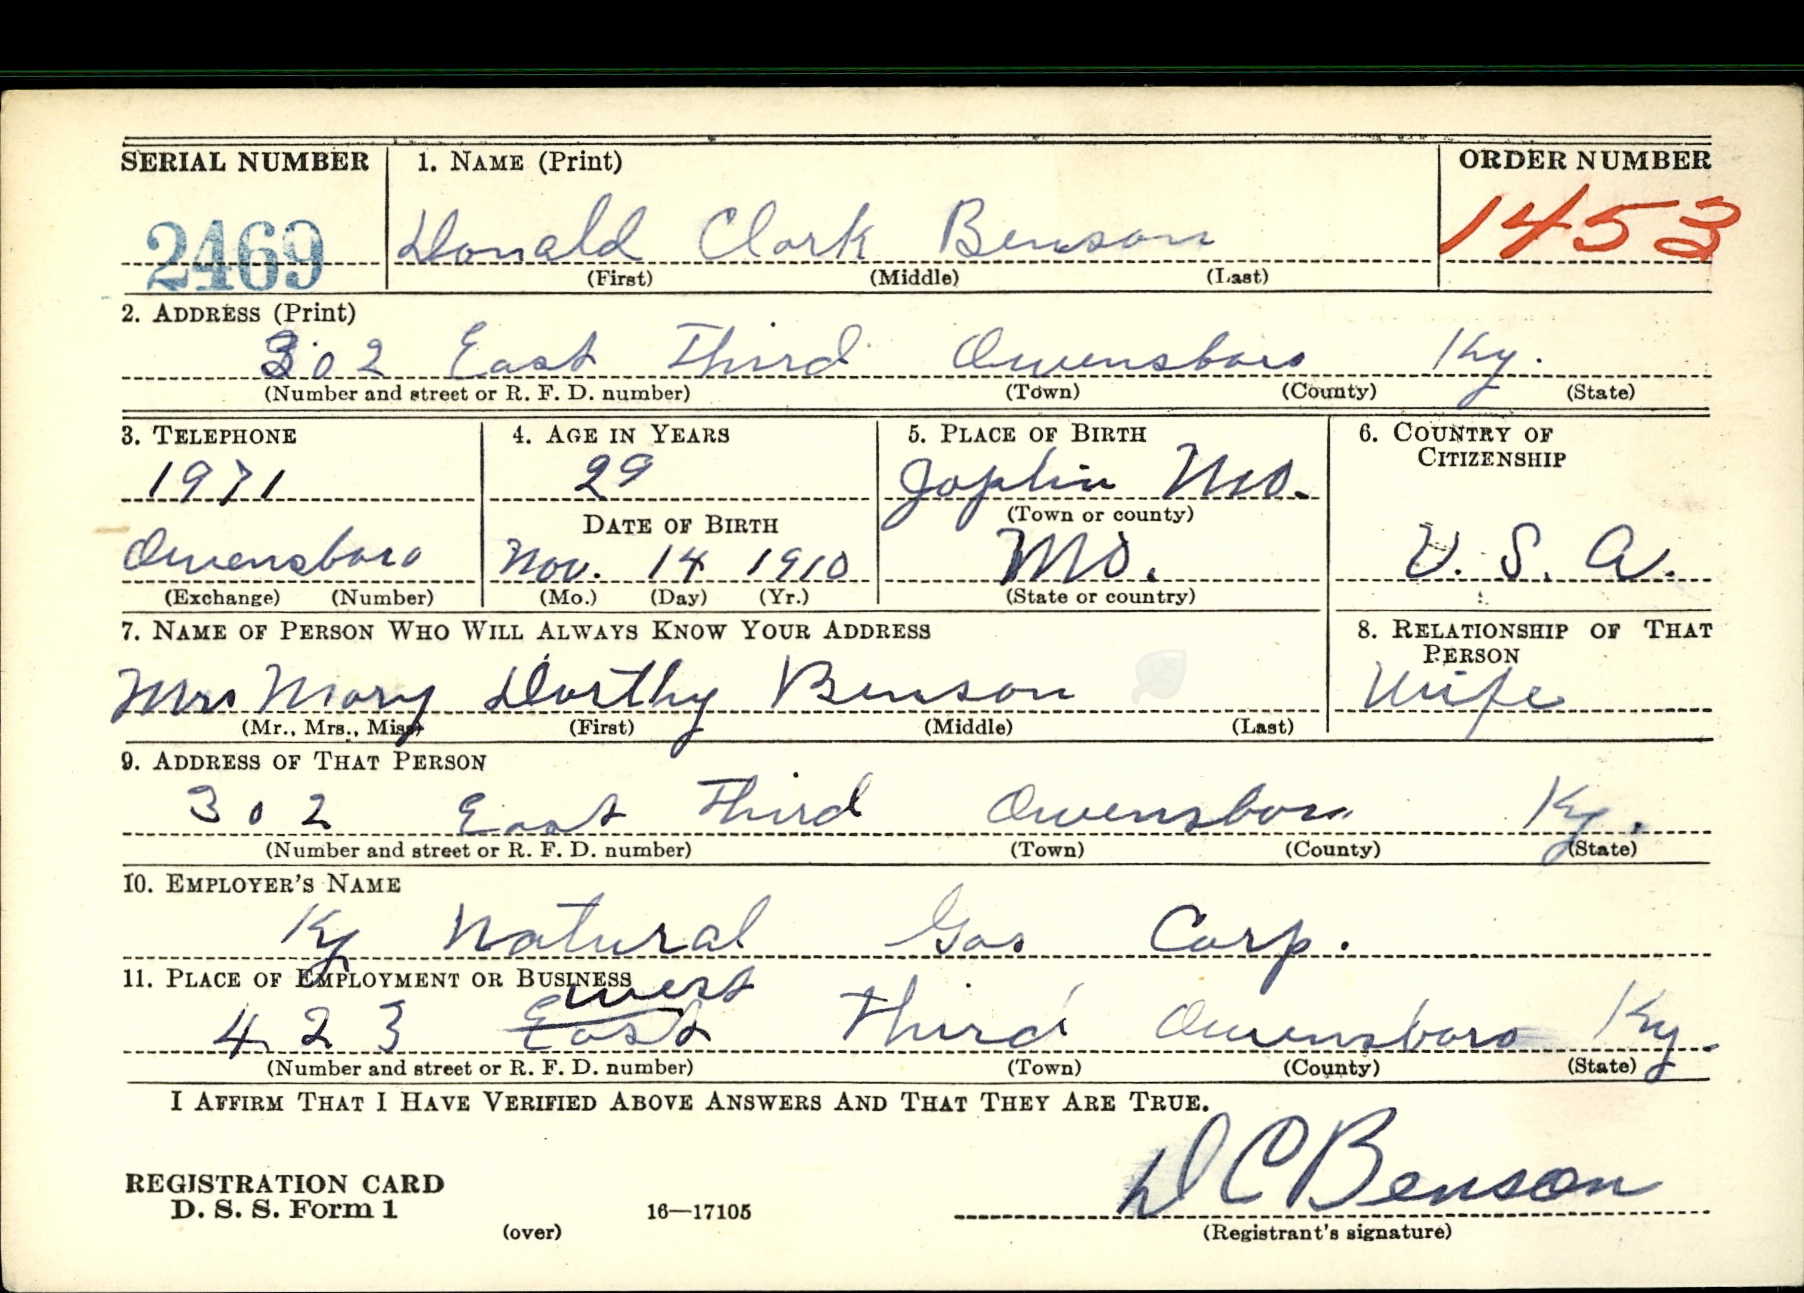 SERIAL NUMBER 1. NAME (Print) ORDER NUMBER
2469 Donald Clark Benson 1453
(First) (Middle) (Last)
2. ADDRESS (Print)
302 East Third Owensboro Ky.
(Number and street or R. F. D. number) (Town) (County) (State)
3. TELEPHONE 4. AGE IN YEARS 5. PLACE OF BIRTH 6. COUNTRY OF
CITIZENSHIP
1971 29 Joplin Mo.
(Town or county)
DATE OF BIRTH
Owensboro Nov. 14 1910 Mo. U. S. A.
(Exchange) (Number) (Mo.) (Day) (Yr.) (State or country)
7. NAME OF PERSON WHO WILL ALWAYS KNOW YOUR ADDRESS 8. RELATIONSHIP OF THAT
PERSON
Mrs Mary Dorthy Benson Wife
(Mr., Mrs., Miss) (First) (Middle) (Last)
9. ADDRESS OF THAT PERSON
302 East Third Owensboro Ky.
(Number and street or R. F. D. number) (Town) (County) (State)
10. EMPLOYER'S NAME
Ky Natural Gas Corp.
11. PLACE OF EMPLOYMENT OR BUSINESS
west
423 East Third Owensboro Ky.
(Number and street or R. F. D. number) (Town) (County) (State)
I AFFIRM THAT I HAVE VERIFIED ABOVE ANSWERS AND THAT THEY ARE TRUE.
D C Benson
REGISTRATION CARD
D. S. S. Form 1
(over) 16—17105 (Registrant's signature)